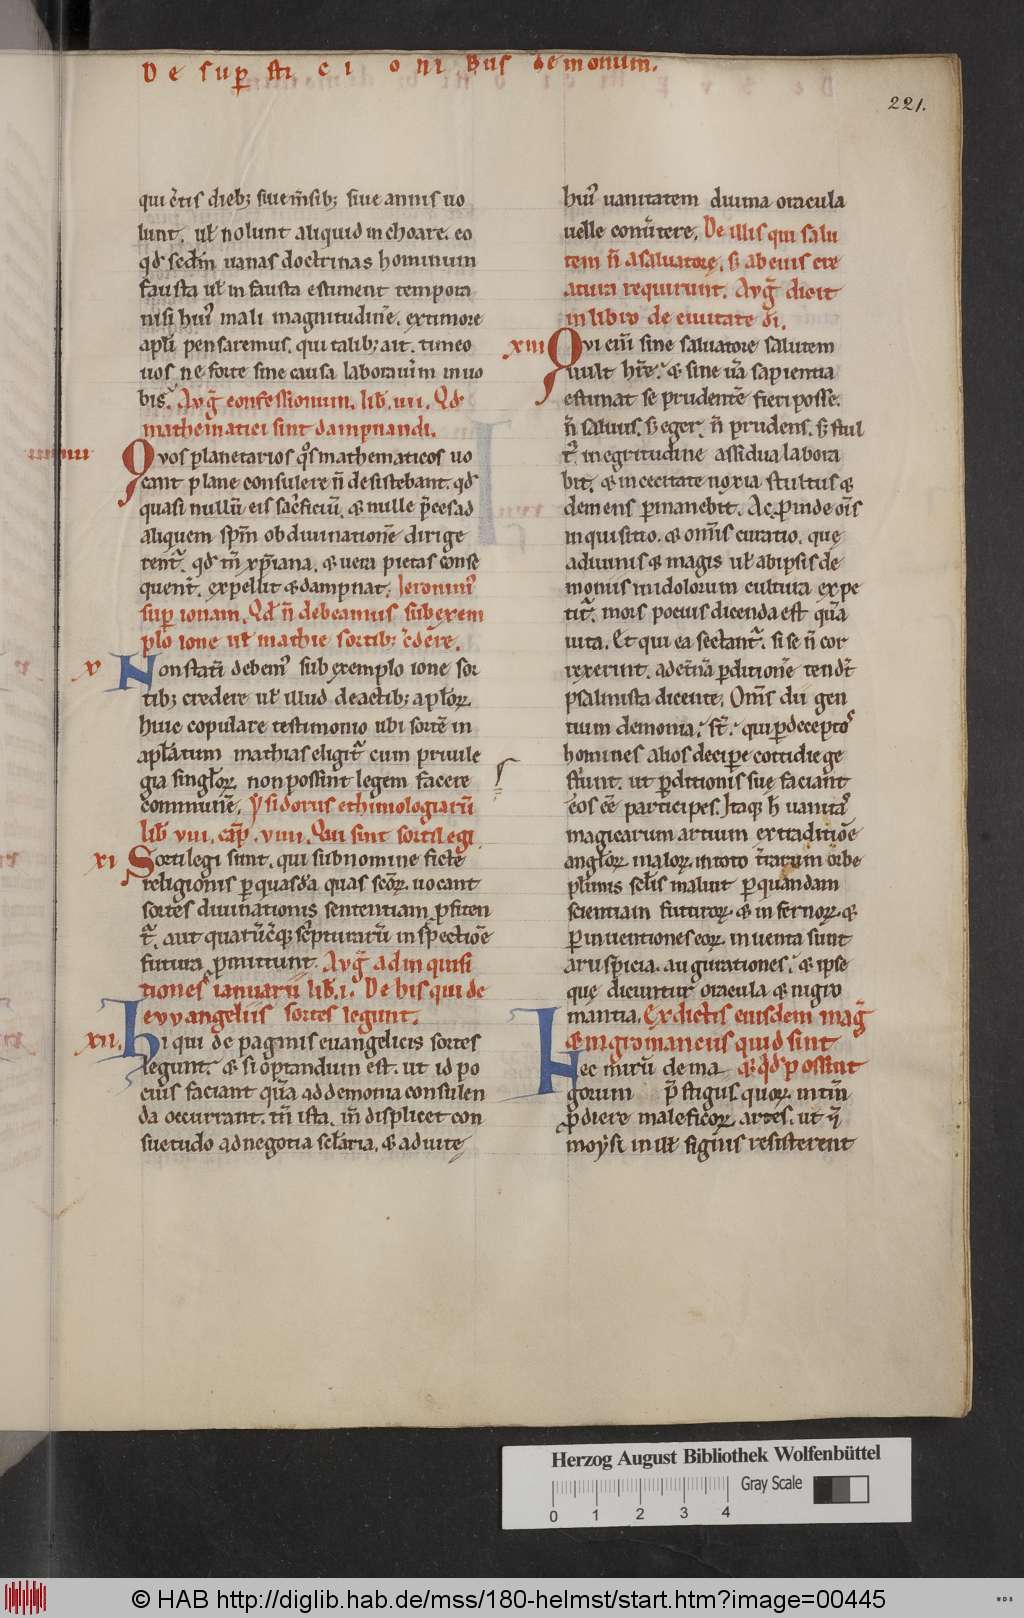 De supersticionibus demonum.
221.
qui c̄tis dieb; siue m̄sib; siue annis uo
lunt. uł nolunt aliquid inchoare. eo
qđ sedm̄ uanas doctrinas hominum
fausta uł infausta estiment tempora
nisi hui᾽ mali magnitudinē. ex timore
apłi pensaremus. qui talib; ait. timeo
uos ne forte sine causa laborauim̄ in uo
bis. Avḡ confessionum. lib. iiii. Qđ
mathematici sint dampnandi.
viiii
Qvos planetarios q̊s mathematicos uo
cant plane consulere ñ desistebant. qđ
quasi nullū eis sac̓ficiū. & nulle p̄ces ad
aliquem sp̄m ob diuinationē dirige
rent᷑. qđ tñ xp̄iana. & uera pietas conse
quent᷑. expellit & dampnat. Ieronim᾽
sup ionam. Qđ ñ debeamus sub exem
plo ione uł mathie sortib; c̄dēre.
x
Non statī debem᾽ sub exemplo ione sor
tib; credere uł illud de actib; aplōꝝ.
huic copulare testimonio ubi sortē in
apłatum mathias eligit᷑ cum priuile
gia singłoꝝ. non possint legem facere
communē. ysidorus ethimologiarū
lib̄ viii. cap̄. viiii. Qui sint sortilegi
xi
Sortilegi sunt. qui sub nomine ficte
religionis ꝑ quasda quas scōꝝ. uocant
sortes diuinationis sententiam ꝓfiten
t᷑. aut quarūcūq; sc̓pturarū inspectiōe
futura ꝓmittunt. Avḡ ad inquisi
tiones ianuarii lib̄. i. De his qui de
evvangeliis sortes legunt.
xii.
hi qui de paginis euangelicis sortes
legunt. & si optandum est. ut id po
cius faciant quā ad demonia consulen
da occurrant. tñ ista. m̄ displicet con
suetudo ad negotia scłaria. & ad uitę
hui᾽ uanitatem diuina oracula
uelle conūtere. De illis qui salu
tem ñ a saluatore. s; ab eius cre
atura requirunt. Avḡ dicit
in libro de ciuitate di.
xiii
Qvi eni᷑ sine saluatore salutem
uult hr̄e. & sine ūa sapientia
estimat se prudentē fieri posse.
ñ saluus. s; eger. ñ prudens. s; stul
t᾽ in egritudine assidua labora
bit. & in cecitate noxia stultus &
demens ꝑmanebit. Ac ꝓinde oīs
inquisitio. & omīs curatio. quę
a diuinis & magis uł ab ipsis de
moniis in idolorum cultura expe
tit᷑. mors pocius dicenda est quā
uita. Et qui ea sectant᷑. si se ñ cor
rexerint. ad et̄nā ꝑditionē tendt̄
psalmista dicente. Om̄s dii gen
tium demonia. st̄. qui ꝑ deceptos
homines alios decipe cottidie ge
stiunt. ut ꝑditionis suę faciant
eos eē participes. Itaq; h̄ uanita᾽
magicarum artium ex traditiōe
angłoꝝ maloꝝ. in toto t̄rarum orbe
plīmis scłis ualuit ꝑ quandam
scientiam futuroꝝ. & infernoꝝ. &
ꝑ inuentiones eoꝝ. inuenta sunt
aruspicia. augurationes. & ipse
quę dicuntur oracula & nigro
mantia. Ex dictis eiusdem mag̃
& nigromancius quid sint
Hec mirū de ma & qđ possint
gorum p̄stigiis. quoꝝ in tm̄
ꝓdiere maleficoꝝ. artes. ut ī
moysi in uł signis resisterent
Herzog August Bibliothek Wolfenbüttel
Gray Scale
0 1 2 3 4
© HAB http://diglib.hab.de/mss/180-helmst/start.htm?image=00445